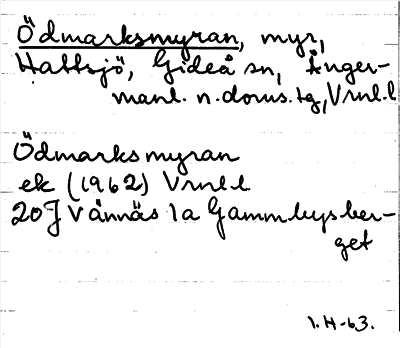 Ödmarksmyran, myr,
Hattsjö, Gideå sn, Ånger-
manl. n. doms. tg, Vrnl. l
Ödmarksmyran
ek (1962) Vrnl. l
20J Vännäs 1a Gammbysber-
get
1.H-63.